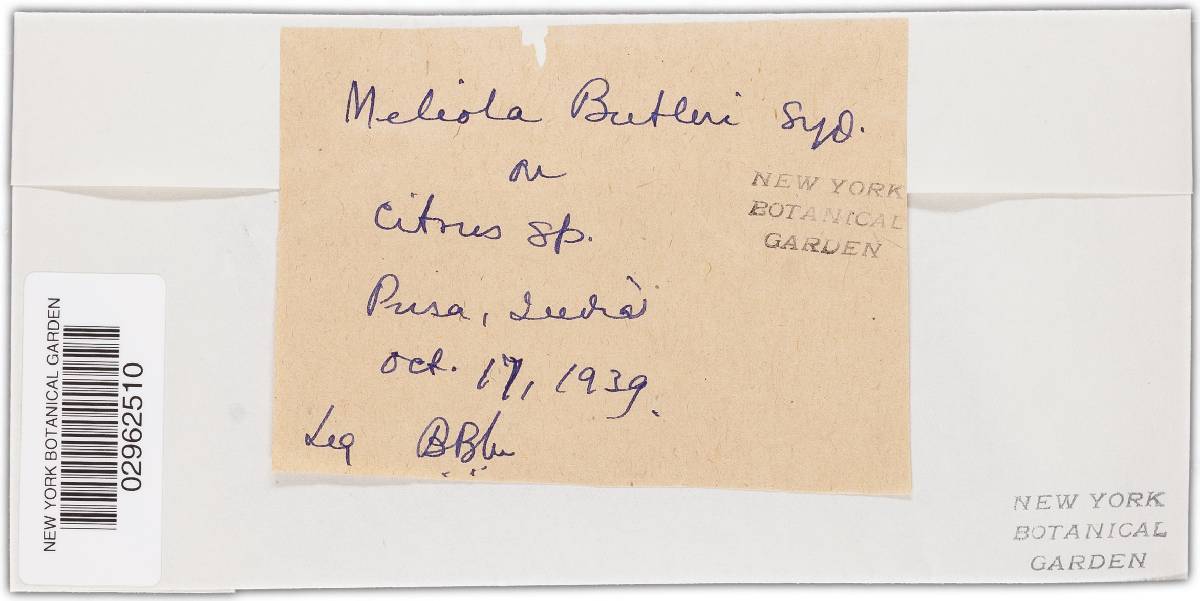 Meliola Butleri Syd.
on
Citrus sp.
Pusa, India
Oct. 17, 1939.
Leg
NEW YORK
BOTANICAL
GARDEN
NEW YORK BOTANICAL GARDEN
02962510
NEW YORK
BOTANICAL
GARDEN